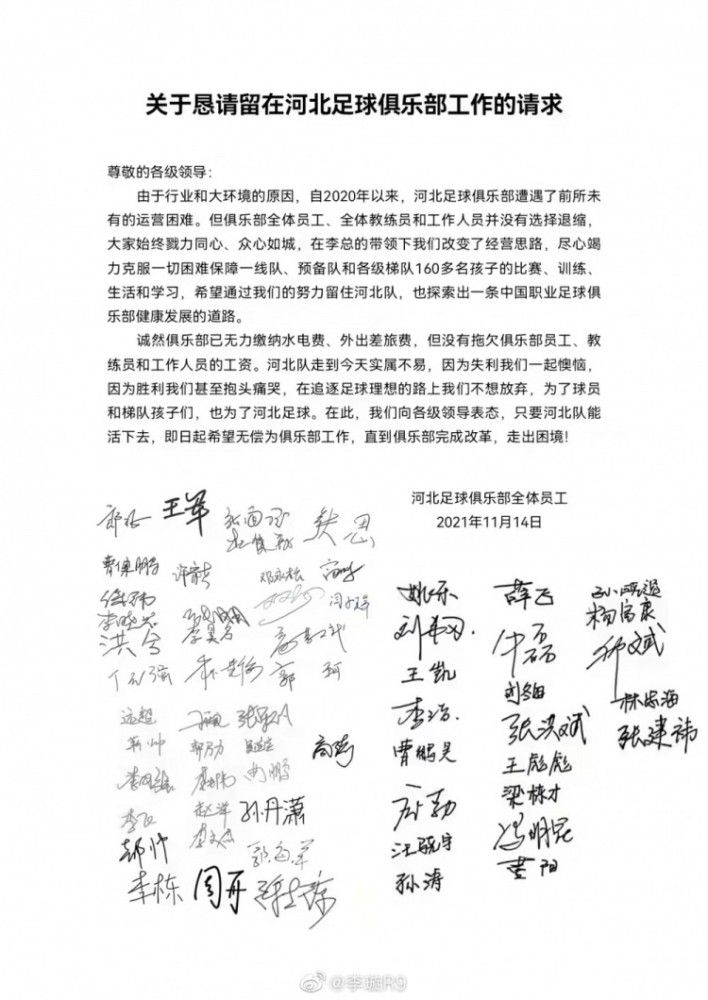 关于恳请留在河北足球俱乐部工作的请求
尊敬的各级领导：
由于行业和大环境的原因，自2020年以来，河北足球俱乐部遭遇了前所未
有的运营困难。但俱乐部全体员工、全体教练员和工作人员并没有选择退缩，
大家始终戮力同心、众心如城，在李总的带领下我们改变了经营思路，尽心竭
力克服一切困难保障一线队、预备队和各级梯队160多名孩子的比赛、训练、
生活和学习，希望通过我们的努力留住河北队，也探索出一条中国职业足球俱
乐部健康发展的道路。
诚然俱乐部已无力缴纳水电费、外出差旅费，但没有拖欠俱乐部员工、教
练员和工作人员的工资。河北队走到今天实属不易，因为失利我们一起懊恼，
因为胜利我们甚至抱头痛哭，在追逐足球理想的路上我们不想放弃，为了球员
和梯队孩子们，也为了河北足球。在此，我们向各级领导表态，只要河北队能
活下去，即日起希望无偿为俱乐部工作，直到俱乐部完成改革，走出困境！
河北足球俱乐部全体员工
2021年11月14日
王军
曹保鹏
姚乐
薛飞
杨富康
洪兮
王凯
牛磊
李浩
林忠海
远超
张洪斌
张建祎
曹鹏昊
王彪彪
梁栋才
孙丹潇
冯明昆
郝帅
汪晓宇
黄阳
李栋
周丹
孙涛
@李璇R9